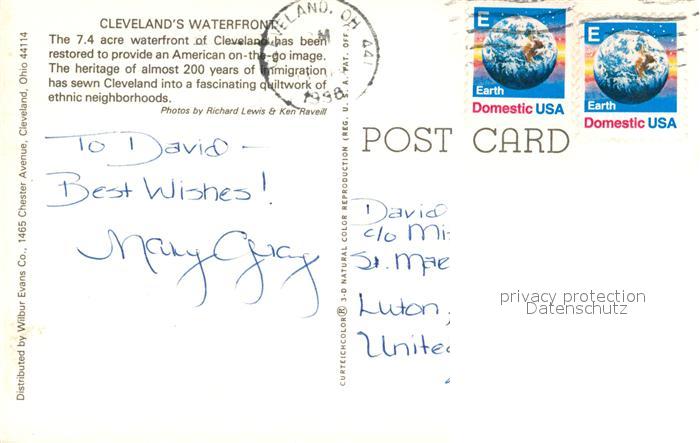 CLEVELAND'S WATERFRONT
The 7.4 acre waterfront of Cleveland has been
restored to provide an American on-the-go image.
The heritage of almost 200 years of immigration
has sewn Cleveland into a fascinating quiltwork of
ethnic neighborhoods.
Photos by Richard Lewis & Ken Raveill
To David –
Best Wishes!
Mary Gray
Distributed by Wilbur Evans Co., 1465 Chester Avenue, Cleveland, Ohio 44114
CURTEICHCOLOR® 3-D NATURAL COLOR REPRODUCTION (REG. U.S.A. PAT. OFF.
ELAND, OH 441
1988
E
Earth
Domestic USA
E
Earth
Domestic USA
POST CARD
David
c/o Mi
St. Mae
Luton,
Unite
privacy protection
Datenschutz